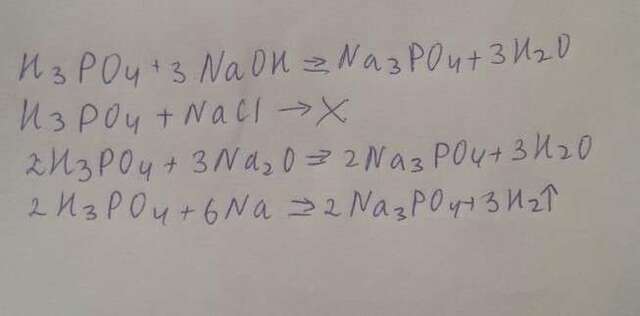 H₃PO₄ + 3 NaOH ⇒ Na₃PO₄ + 3H₂O
H₃PO₄ + NaCl → X
2H₃PO₄ + 3Na₂O ⇒ 2Na₃PO₄ + 3H₂O
2 H₃PO₄ + 6Na ⇒ 2 Na₃PO₄ + 3H₂↑